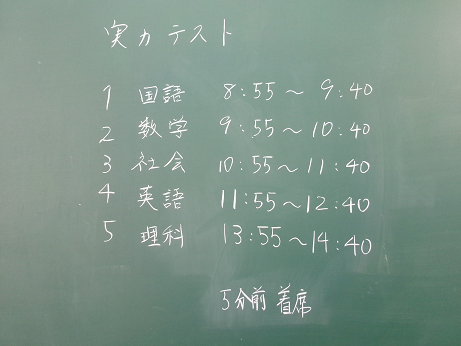 実力テスト
1 国語 8:55～9:40
2 数学 9:55～10:40
3 社会 10:55～11:40
4 英語 11:55～12:40
5 理科 13:55～14:40
5分前着席